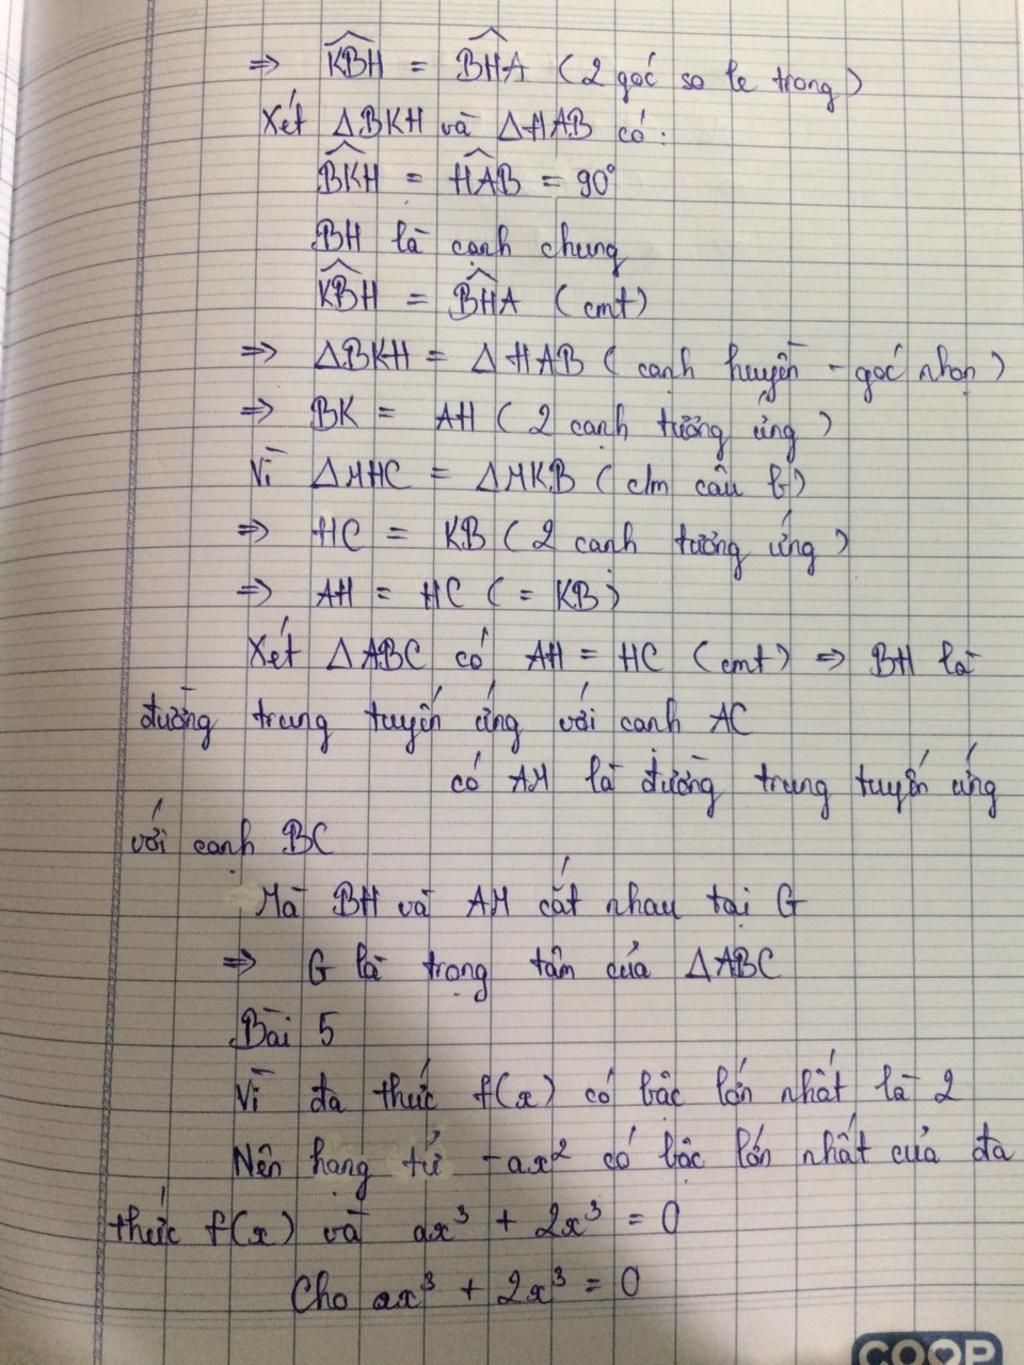 ⇒ KBH = BHA (2 góc so le trong)
Xét ΔBKH và ΔHAB có:
BKH = HAB = 90°
BH là cạnh chung
KBH = BHA (cmt)
⇒ ΔBKH = ΔHAB (cạnh huyền - góc nhọn)
⇒ BK = AH (2 cạnh tương ứng)
Vì ΔMHC = ΔMKB (c/m câu b)
⇒ HC = KB (2 cạnh tương ứng)
⇒ AH = HC (= KB)
Xét ΔABC có AH = HC (cmt) ⇒ BH là
đường trung tuyến ứng với cạnh AC
có AM là đường trung tuyến ứng
với cạnh BC
Mà BH và AM cắt nhau tại G
⇒ G là trọng tâm của ΔABC
Bài 5
Vì đa thức f(x) có bậc lớn nhất là 2
Nên hạng tử -ax² có bậc lớn nhất của đa
thức f(x) và ax³ + 2x³ = 0
Cho ax³ + 2x³ = 0
COOP